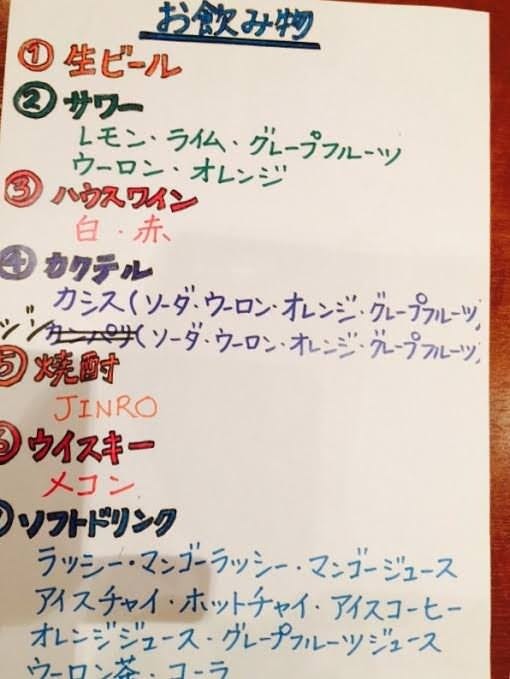 お飲み物
① 生ビール
② サワー
レモン・ライム・グレープフルーツ
ウーロン・オレンジ
③ ハウスワイン
白・赤
④ カクテル
カシス(ソーダ・ウーロン・オレンジ・グレープフルーツ)
ジン(ソーダ・ウーロン・オレンジ・グレープフルーツ)
⑤ 焼酎
JINRO
⑥ ウイスキー
メコン
ソフトドリンク
ラッシー・マンゴーラッシー・マンゴージュース
アイスチャイ・ホットチャイ・アイスコーヒー
オレンジジュース・グレープフルーツジュース
ウーロン茶・コーラ